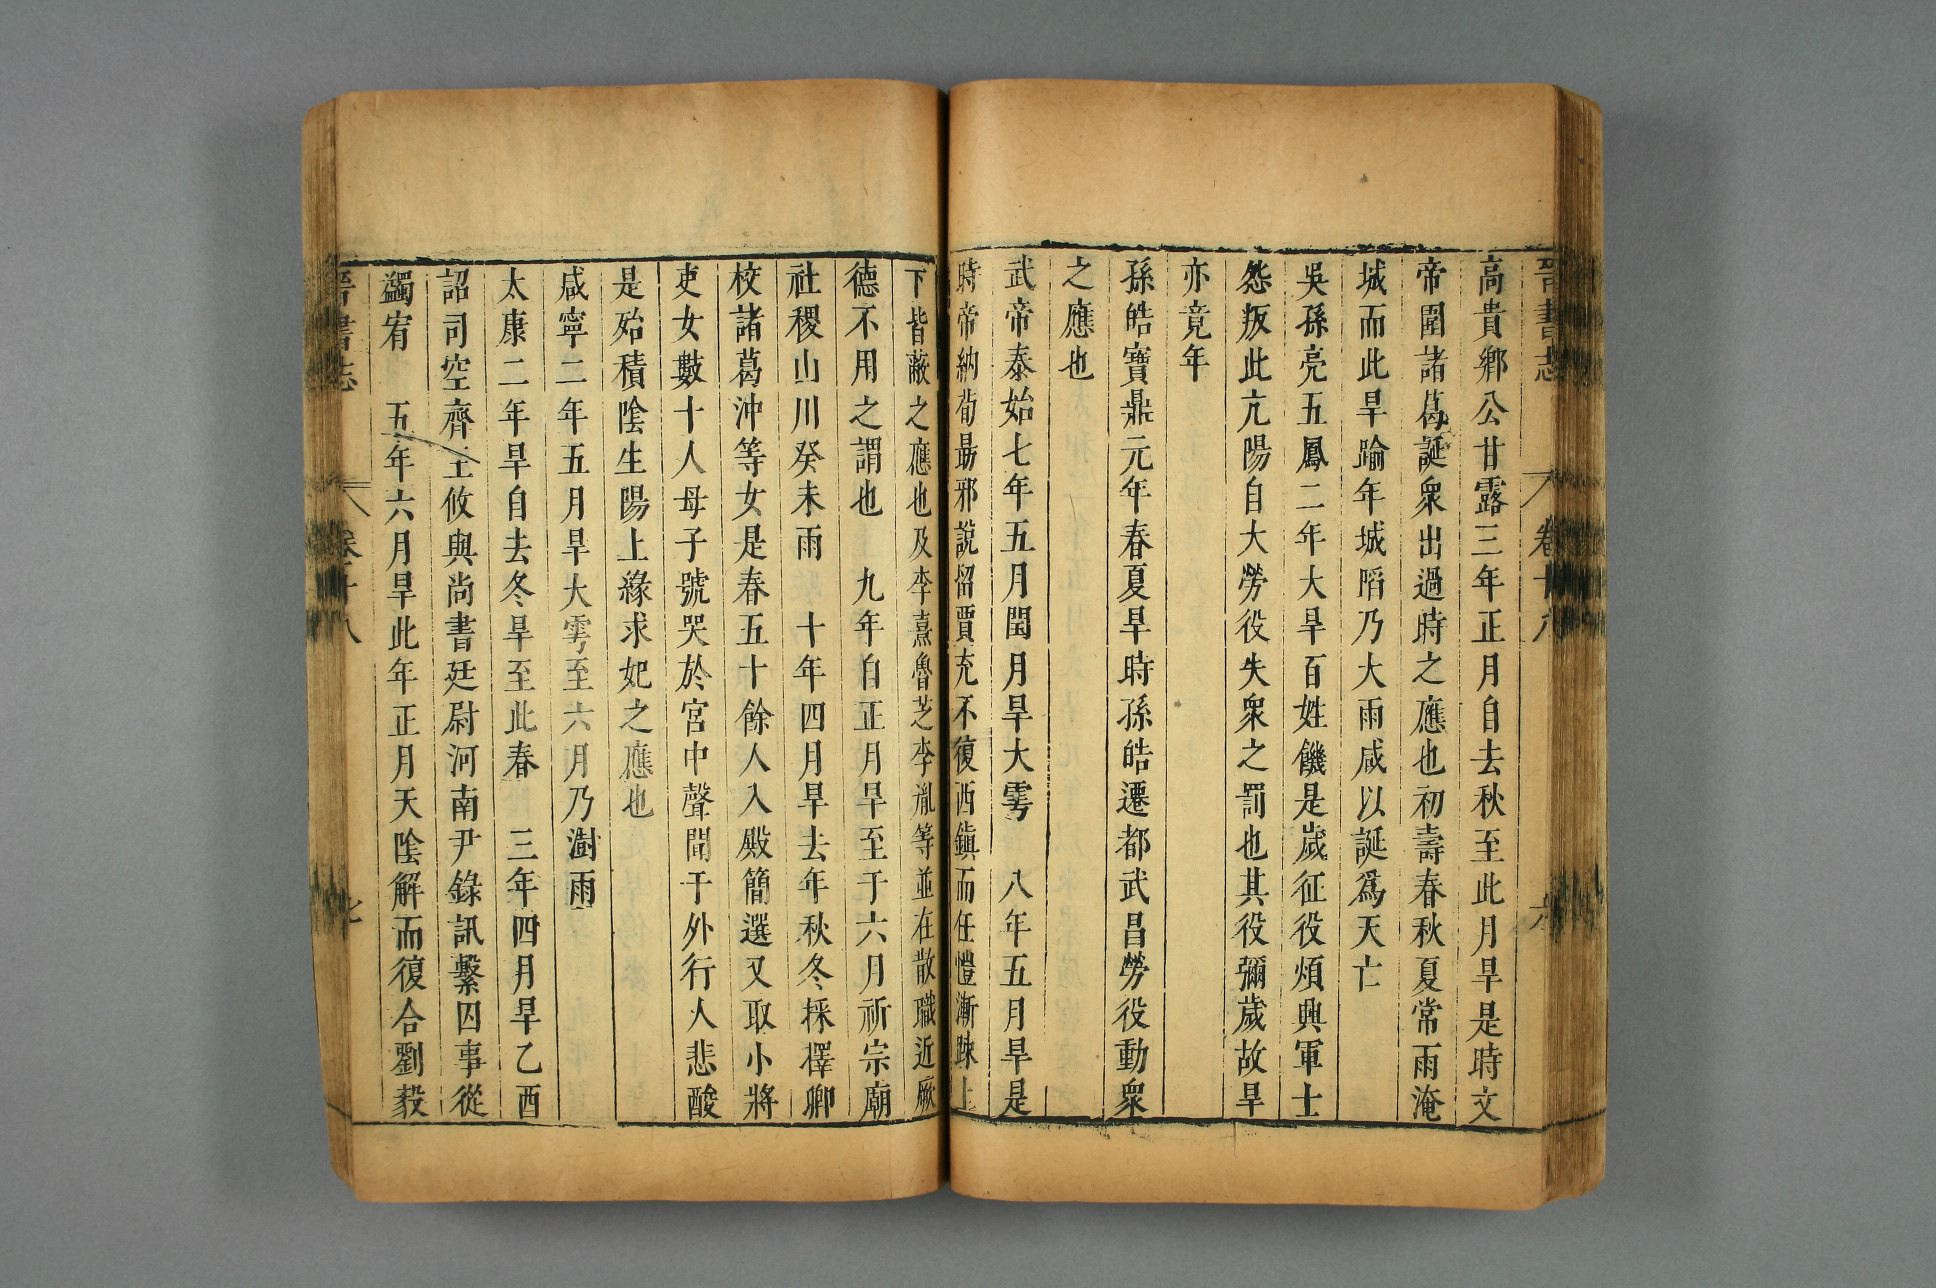 晉書志 卷十八 六
高貴鄉公甘露三年正月自去秋至此月旱是時文
帝圍諸葛誕衆出過時之應也初壽春秋夏常雨淹
城而此旱踰年城陷乃大雨咸以誕爲天亡
吳孫亮五鳳二年大旱百姓饑是歲征役煩興軍士
怨叛此亢陽自大勞役失衆之罰也其役彌歲故旱
亦竟年
孫皓寶鼎元年春夏旱時孫皓遷都武昌勞役動衆
之應也
武帝泰始七年五月閏月旱大雩 八年五月旱是
時帝納荀勗邪說留賈充不復西鎮而任愷漸疎上
下皆蔽之應也及李憙魯芝李胤等並在散職近厥
德不用之謂也 九年自正月旱至于六月祈宗廟
社稷山川癸未雨 十年四月旱去年秋冬採擇卿
校諸葛沖等女是春五十餘人入殿簡選又取小將
吏女數十人母子號哭於宮中聲聞于外行人悲酸
是殆積陰生陽上緣求妃之應也
咸寧二年五月旱大雩至六月乃澍雨
太康二年旱自去冬旱至此春 三年四月旱乙酉
詔司空齊王攸與尚書廷尉河南尹錄訊繫囚事從
蠲宥 五年六月旱此年正月天陰解而復合劉毅
晉書志 卷十八 七